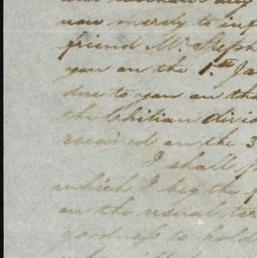 now merely to inf
friend Mr. Steph
you on the 1st Ja
due to you on tha
the Chilian divid
received on the 3
I shall
which I beg the f
on the usual ter
goodness to hold